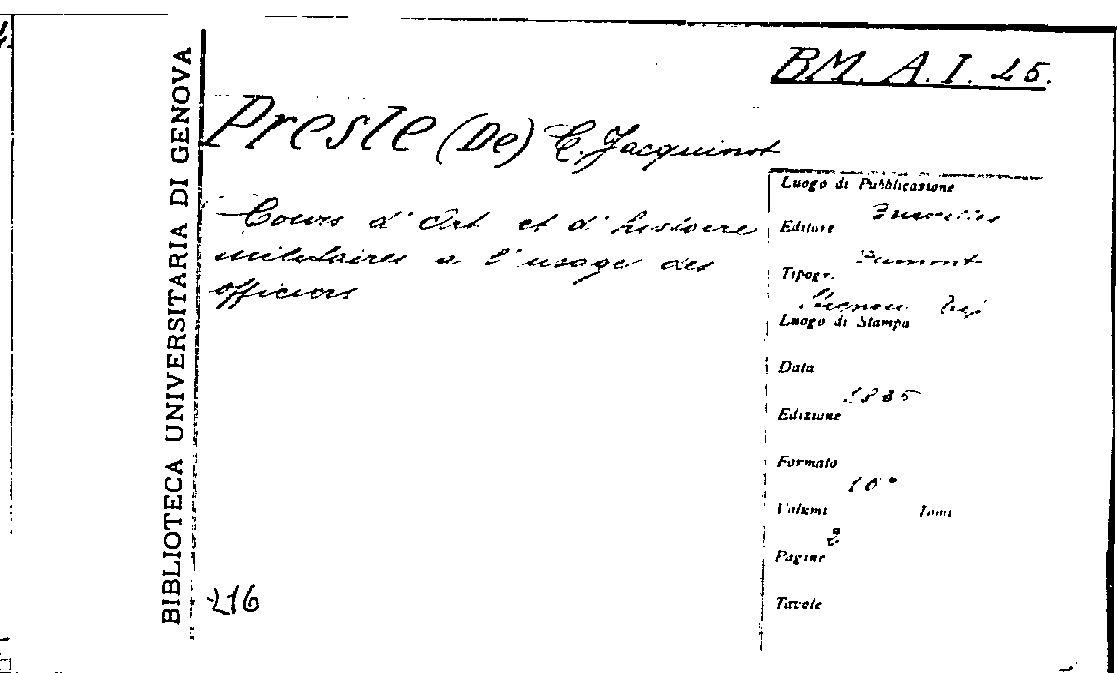 BM. A. I. 25.
BIBLIOTECA UNIVERSITARIA DI GENOVA
Presle (De) C. Jacquinot
Cours d'Art et d'histoire
militaires a l'usage des
officiers
Luogo di Pubblicazione
Bruxelles
Editore
Dumont
Tipogr.
Luogo di Stampa
Data
1885
Edizione
Formato
16°
Volumi Tomi
2
Pagine
Tavole
216